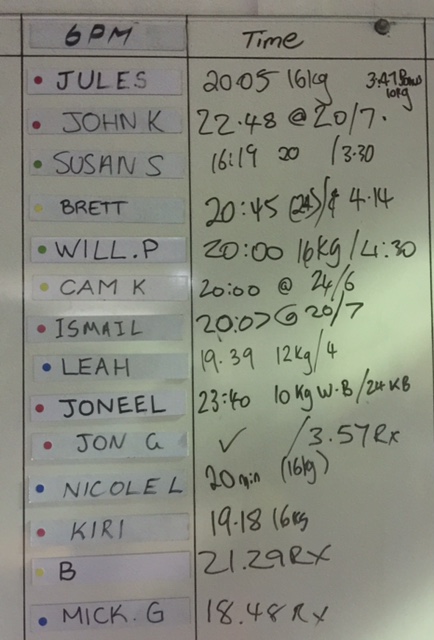 6PM Time
JULES 20:05 16kg 3:47
10kg
JOHN K 22:48 @ 20/7.
SUSAN S 16:19 20 /3.30
BRETT 20:45 (24)/ 4.14
WILL.P 20:00 16kg/4:30
CAM K 20:00 @ 24/6
ISMAIL 20:07 @ 20/7
LEAH 19.39 12kg/4
JONEEL 23:40 10kg W.B/24KB
JON G ✓ /3.57Rx
NICOLE L 20min (16kg)
KIRI 19.18 16kg
B 21.29RX
MICK.G 18.48Rx